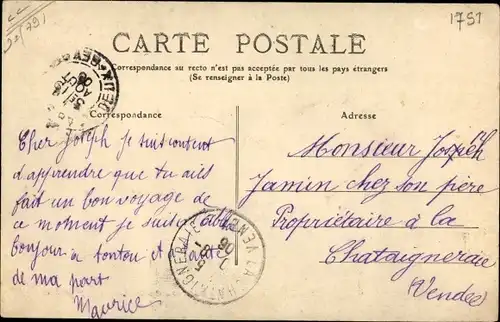 1791
1791
CARTE POSTALE
La Correspondance au recto n'est pas acceptée par tous les pays étrangers
(Se renseigner à la Poste)
Correspondance
Adresse
Cher Joseph je suis content
d'apprendre que tu ais
fait un bon voyage de
ce moment je suis à
bonjour à tonton et tante
de ma part
Maurice
Monsieur Joseph
Jamin chez son père
Propriétaire à la
Chataigneraie
(Vendée)
LA CHATAIGNERAIE VENDEE